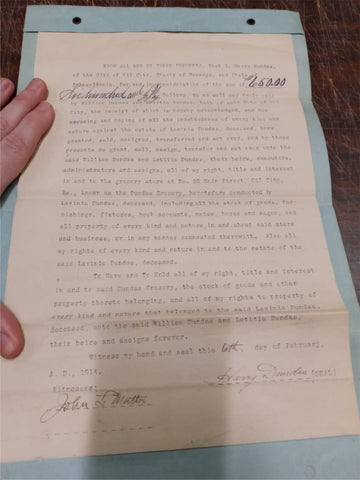 KNOW ALL MEN BY THESE PRESENTS, That I, Henry Dundas,
of the City of Oil City, County of Venango, and State of
Pennsylvania, for and in consideration of the sum of $650.00
Six hundred and fifty Dollars, to me well and truly paid
by William Dundas and Letitia Dundas, both of said City of Oil
City, the receipt of which is hereby acknowledged, and the
assuming and paying of all the indebtedness of every kind and
nature against the estate of Lavinia Dundas, deceased, have
granted, sold, assigned, transferred and set over, and by these
presents do grant, sell, assign, transfer and set over unto the
said William Dundas and Letitia Dundas, their heirs, executors,
administrators and assigns, all of my right, title and interest
in and to the grocery store at No. Street, Oil City,
Pa., known as the Dundas Grocery, heretofore conducted by
Lavinia Dundas, deceased, including all the stock of goods, fur-
nishings, fixtures, book accounts, notes, horse and wagon, and
all property of every kind and nature in and about said store
and business, or in any manner connected therewith. Also all
my rights of every kind and nature in and to the estate of the
said Lavinia Dundas, deceased.
To Have and To Hold all of my right, title and interest
in and to said Dundas Grocery, the stock of goods and other
property thereto belonging, and all of my rights to property of
every kind and nature that belonged to the said Lavinia Dundas,
deceased, unto the said William Dundas and Letitia Dundas,
their heirs and assigns forever.
Witness my hand and seal this 6th. day of February,
A. D., 1914.
Witnesses:
Henry Dundas (SEAL)
John L.